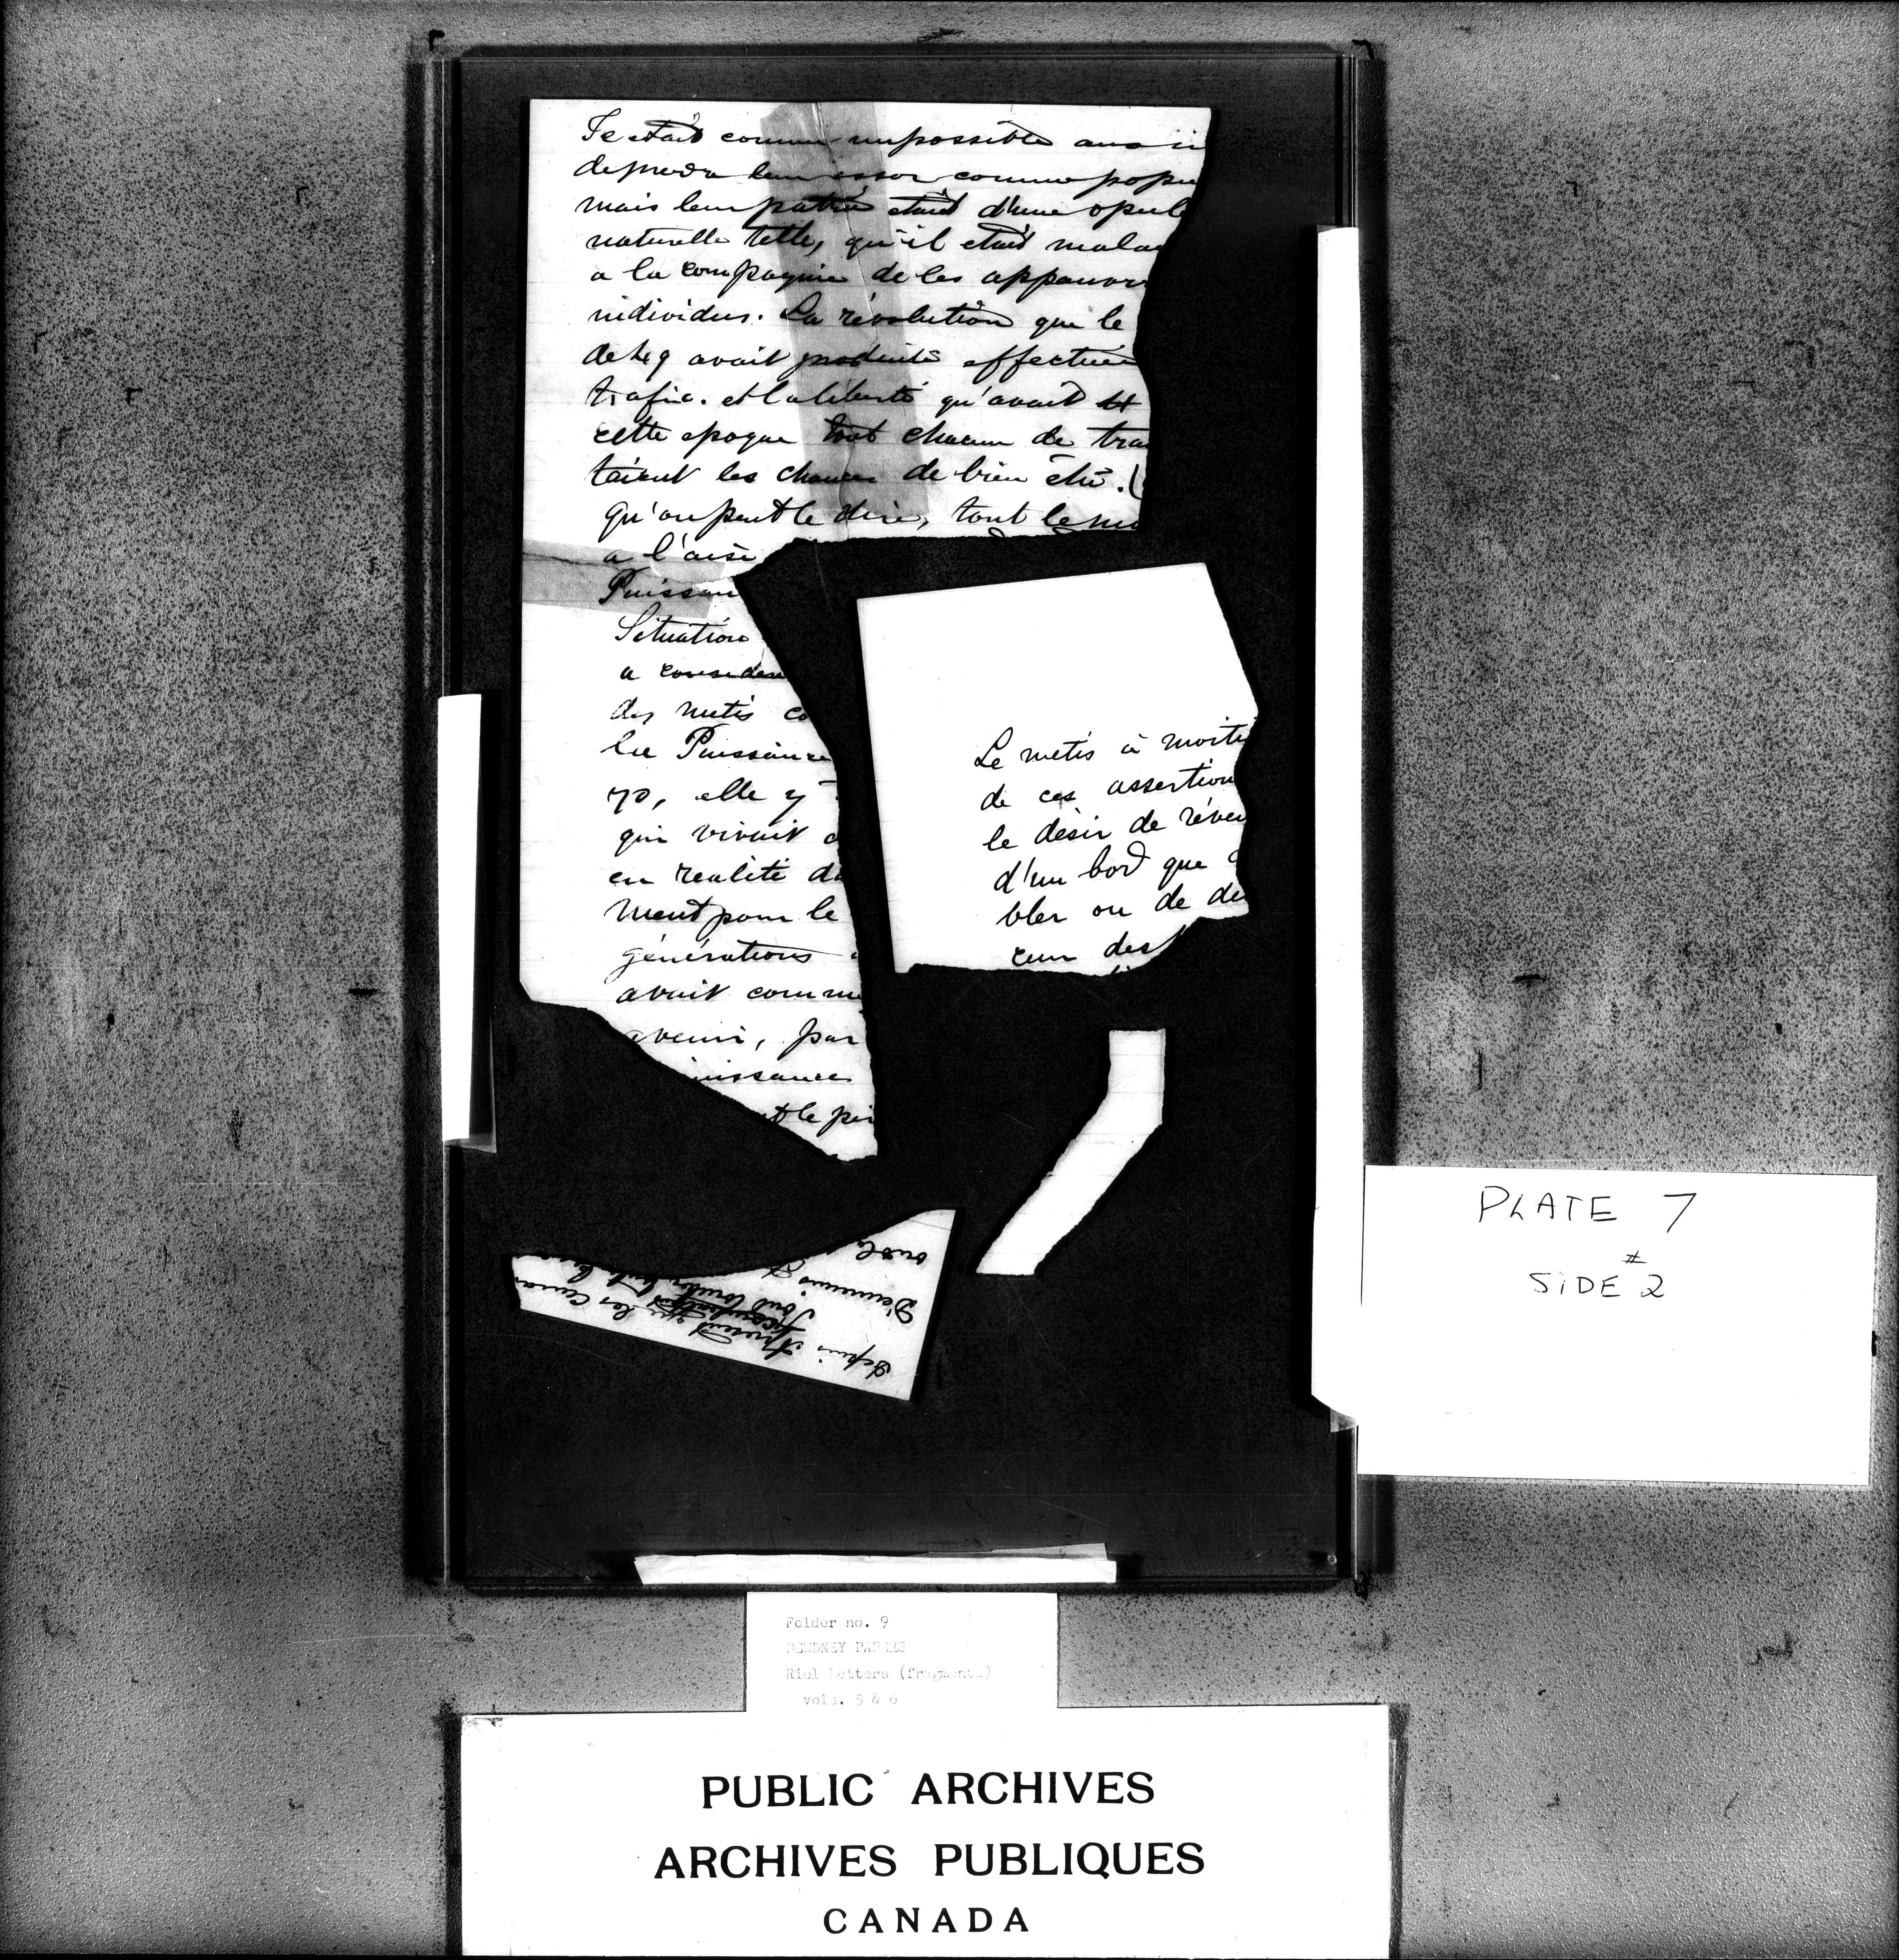 était comme impossible aux
leur essor comme
mais leur patrie était d'une opul
naturelle telle, qu'il était malai
a la compagnie de les appauvr
individus. La révolution que le
de 49 avait produite effectuée
trafic. et la liberté qu'avait
cette epoque tout chacun de tra
taient les chances de bien être. (
qu'on peut le dire, tout le mo
a l'aise
Puissan
Situation
a consider
des metis co
la Puissance
70, elle y
qui vivait
en realité d
ment pour le
générations
avait comm
avenir, par
uissance
t le pi
Le metis à moiti
de ces assertion
le desir de réve
d'un bord que
bler ou de de
cum des
ont
D'ennemis
Depuis
present que les Cana
PLATE 7
SIDE #2
Folder no. 9
DEWDNEY PAPERS
Riel Letters (fragments)
vols. 5 & 6
PUBLIC ARCHIVES
ARCHIVES PUBLIQUES
CANADA